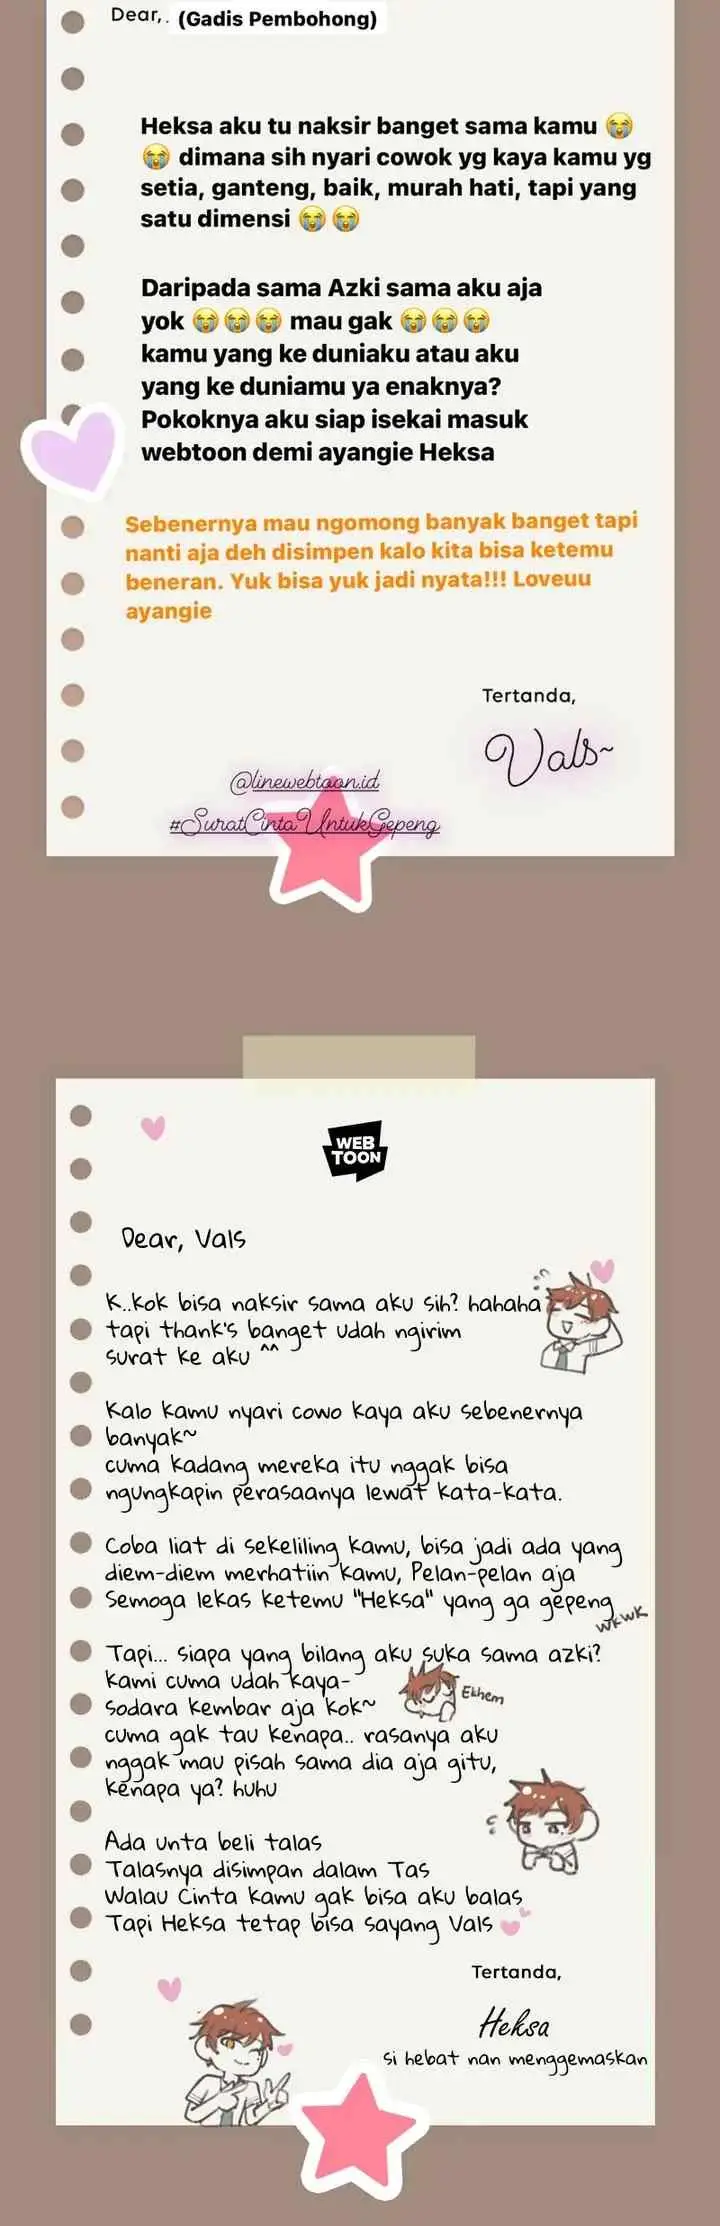 Dear,. (Gadis Pembohong)
Heksa aku tu naksir banget sama kamu 😭
😭 dimana sih nyari cowok yg kaya kamu yg
setia, ganteng, baik, murah hati, tapi yang
satu dimensi 😭😭
Daripada sama Azki sama aku aja
yok 😭😭😭 mau gak 😭😭😭
kamu yang ke duniaku atau aku
yang ke duniamu ya enaknya?
Pokoknya aku siap isekai masuk
webtoon demi ayangie Heksa
Sebenernya mau ngomong banyak banget tapi
nanti aja deh disimpen kalo kita bisa ketemu
beneran. Yuk bisa yuk jadi nyata!!! Loveuu
ayangie
Tertanda,
Vals~
@linewebtoon.id
#SuratCintaUntukGepeng
WEB
TOON
Dear, Vals
K..kok bisa naksir sama aku sih? hahaha
tapi thank's banget udah ngirim
surat ke aku ^^
Kalo kamu nyari cowo kaya aku sebenernya
banyak~
cuma kadang mereka itu nggak bisa
ngungkapin perasaanya lewat kata-kata.
Coba liat di sekeliling kamu, bisa jadi ada yang
diem-diem merhatiin kamu, Pelan-pelan aja
Semoga lekas ketemu "Heksa" yang ga gepeng
wkwk
Tapi... siapa yang bilang aku suka sama azki?
kami cuma udah kaya-
sodara kembar aja kok~
Ekhem
cuma gak tau kenapa.. rasanya aku
nggak mau pisah sama dia aja gitu,
kenapa ya? huhu
Ada unta beli talas
Talasnya disimpan dalam Tas
Walau Cinta kamu gak bisa aku balas
Tapi Heksa tetap bisa sayang Vals
Tertanda,
Heksa
si hebat nan menggemaskan